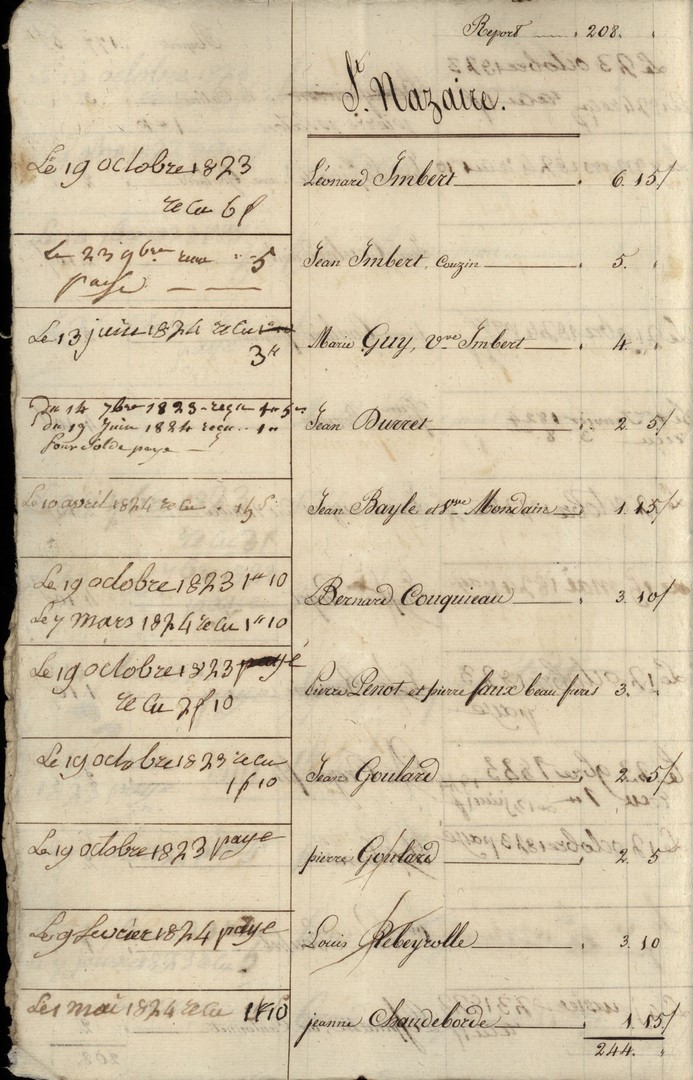 Report 208.
St. Nazaire.
Le 19 octobre 1823
recu 6f
Léonard Imbert 6. 15/
Le 23 9bre recu 5
payé
Jean Imbert, Couzin 5.
Le 13 juin 1824 recu
3tt
Marie Guy, vve Imbert 4.
Du 14 7bre 1823 - reçu 1tt 5s
du 19 juin 1824 reçu 1tt
pour solde paye
Jean Durret 2. 5/
Le 10 avril 1824 recu 15s
Jean Bayle et Vve Mondain 1. 15/
Le 19 octobre 1823 1tt 10
Le 7 mars 1824 recu 1tt 10
Bernard Couquieau 3. 10/
Le 19 octobre 1823 payé
recu 2f 10
Pierre Penot et pierre faux beau freres 3.
Le 19 octobre 1823 recu
1f 10
Jean Goulard 2. 5/
Le 19 octobre 1823 paye
pierre Goulard 2. 5
Le 9 fevrier 1824 paye
Louis Rebeyrolle 3. 10
Le 1 mai 1824 recu
jeanne Chaudeborde 1. 15/
244.